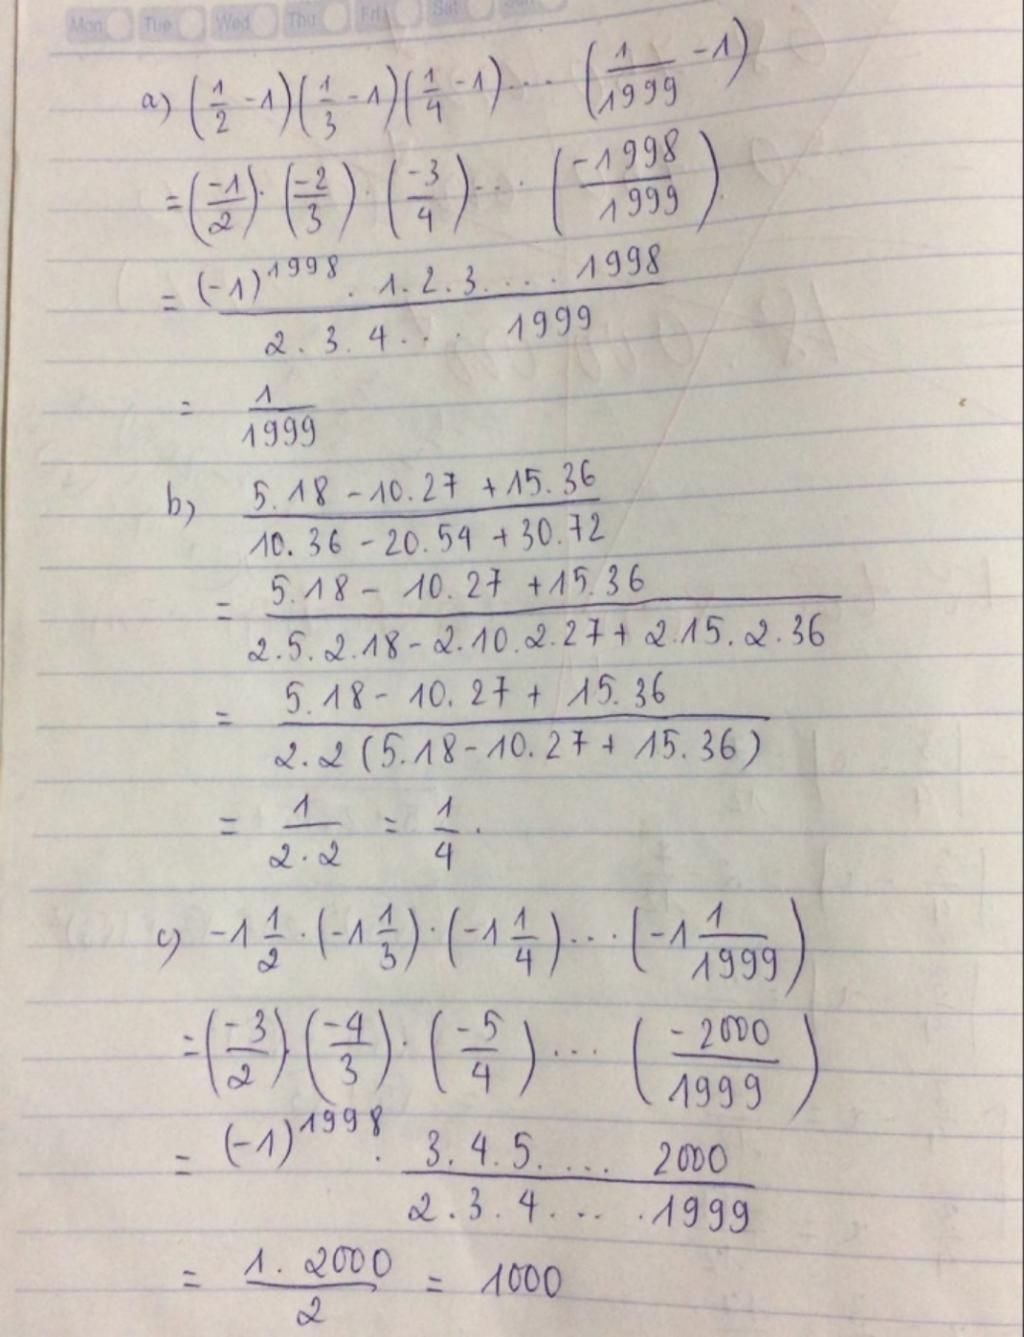 Mon Tue Wed Thu Fri Sat
a) (1/2 - 1)(1/3 - 1)(1/4 - 1)... (1/1999 - 1)
= (-1/2) . (-2/3) . (-3/4) ... (-1998/1999).
= ((-1)^1998 . 1.2.3. ... . 1998)/(2.3.4... 1999)
= 1/1999
b) (5.18 - 10.27 + 15.36)/(10.36 - 20.54 + 30.72)
= (5.18 - 10.27 + 15.36)/(2.5.2.18 - 2.10.2.27 + 2.15.2.36)
= (5.18 - 10.27 + 15.36)/(2.2(5.18 - 10.27 + 15.36))
= 1/(2.2) = 1/4.
c) -1 1/2 . (-1 1/3) . (-1 1/4) ... (-1 1/1999)
= (-3/2) . (-4/3) . (-5/4) ... (-2000/1999)
= (-1)^1998 . (3.4.5. ... 2000)/(2.3.4. ... .1999)
= (1.2000)/2 = 1000